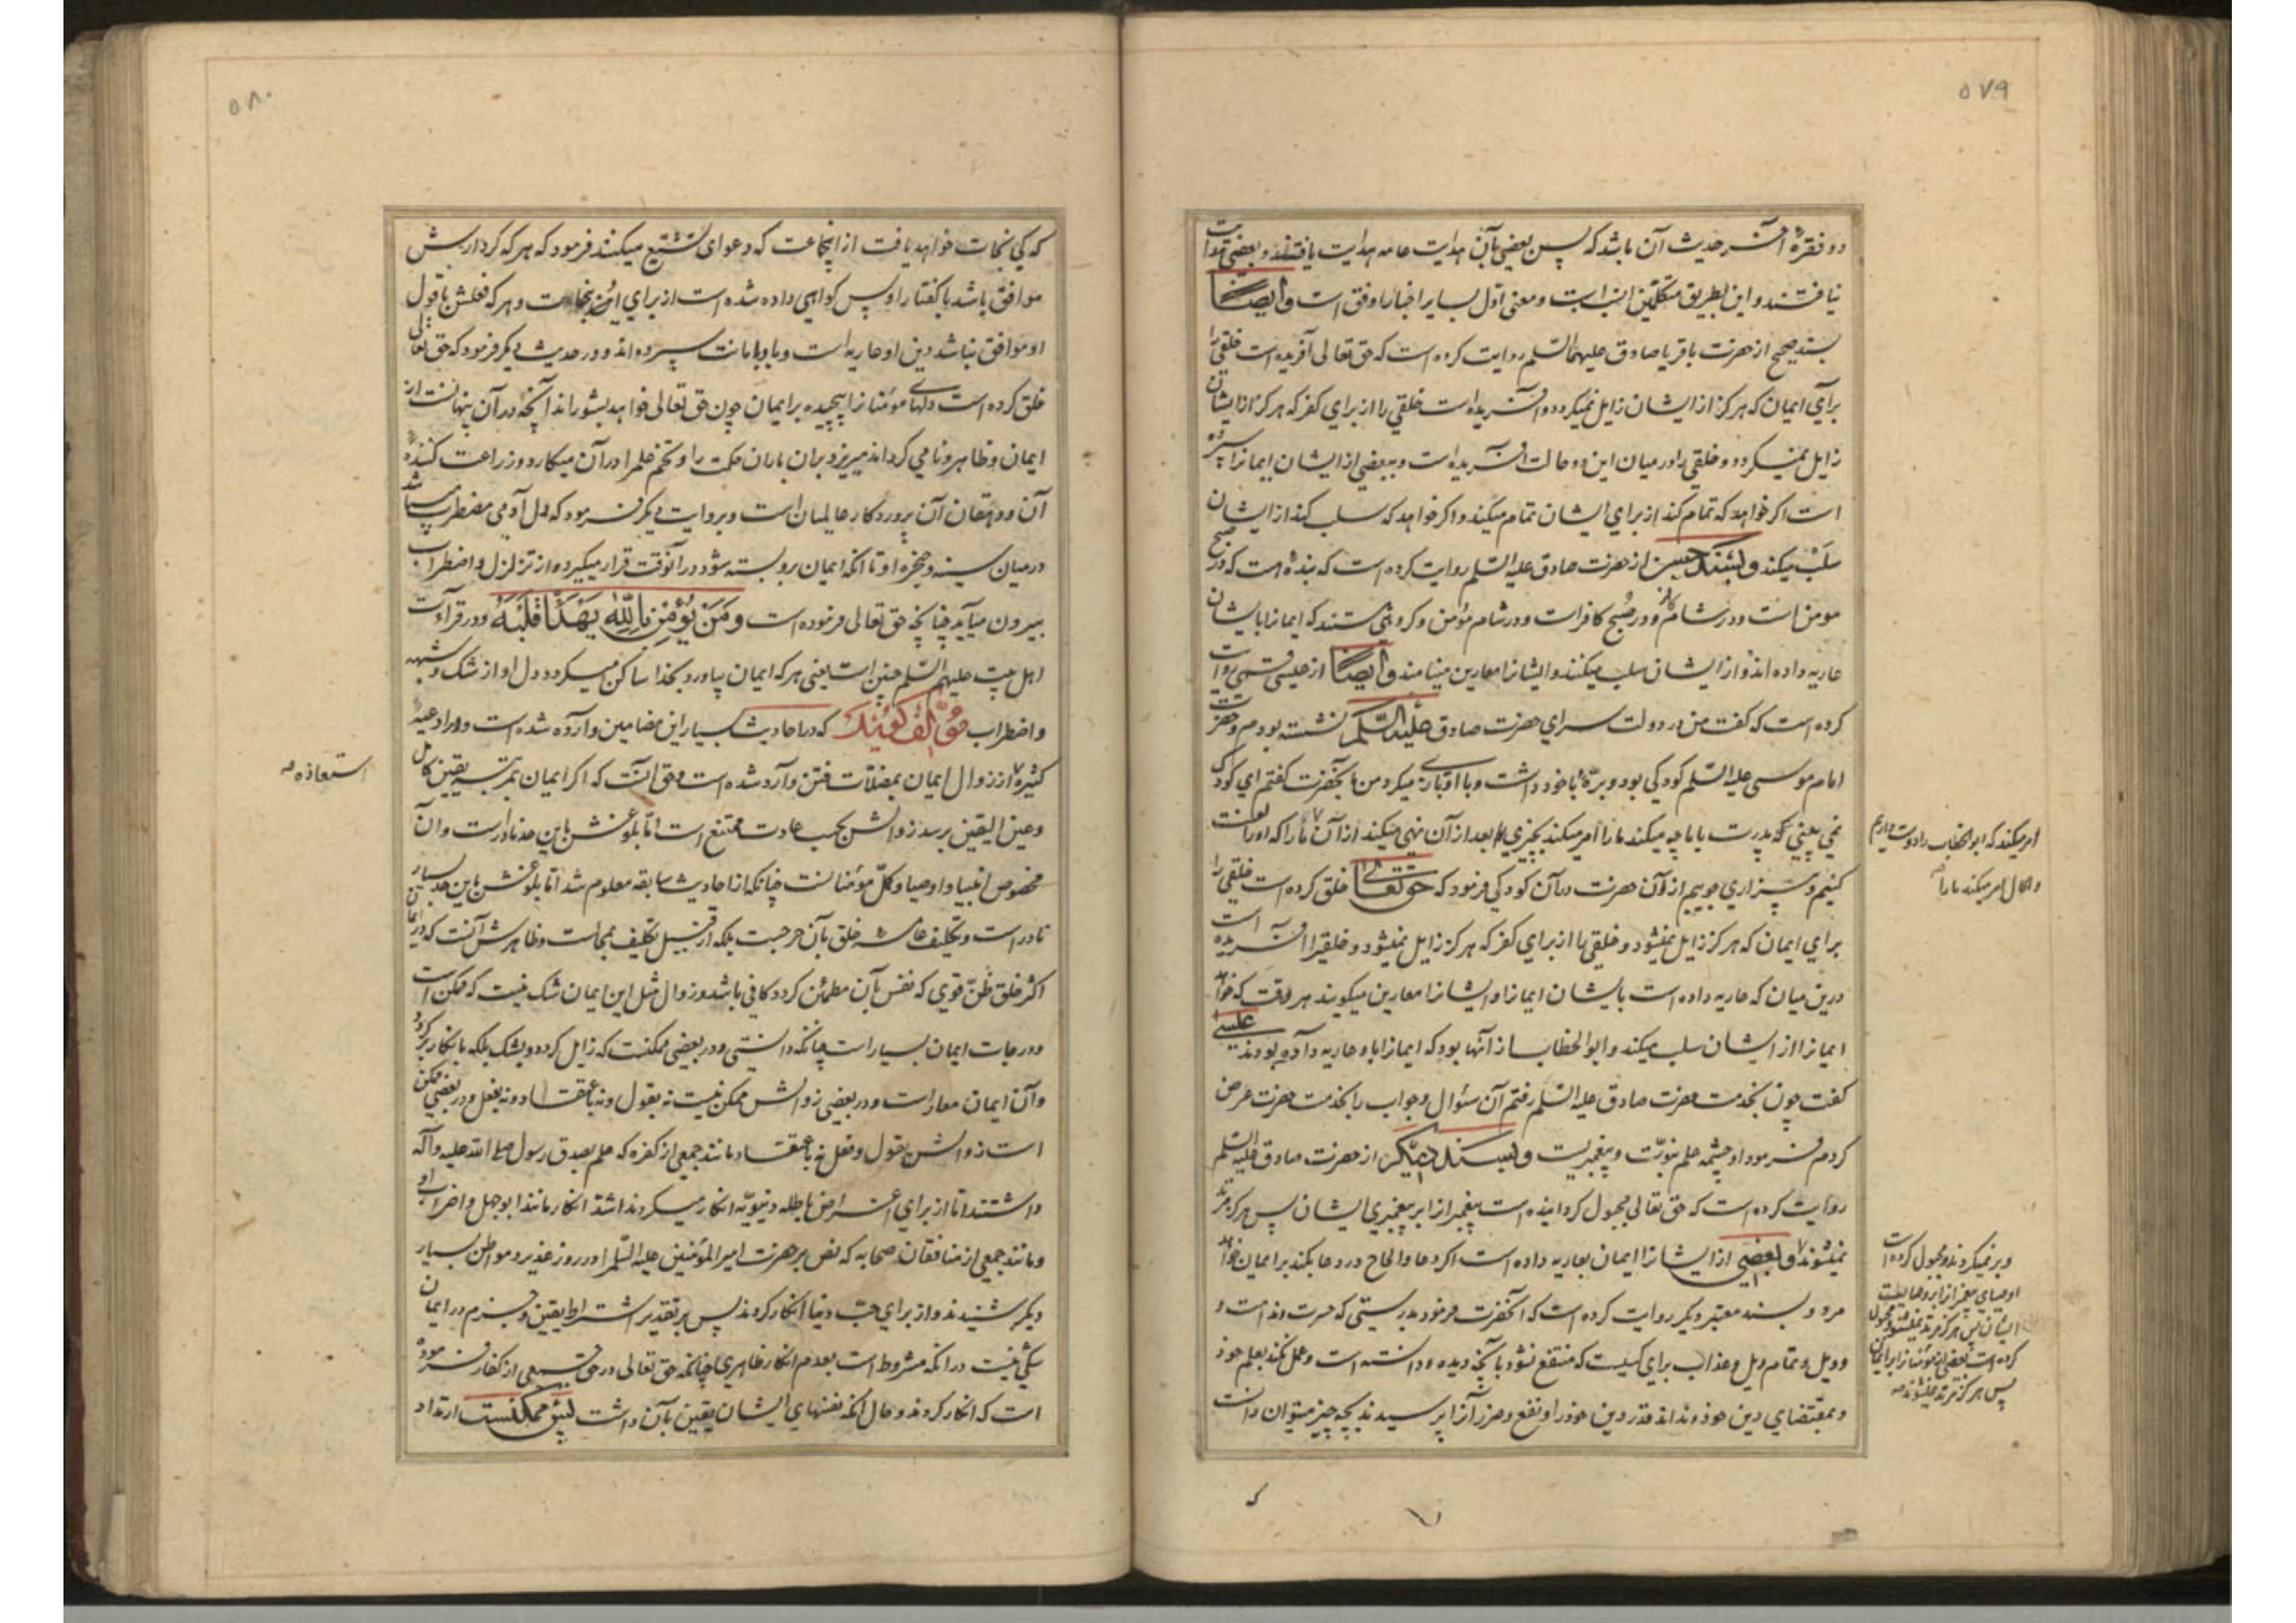 ۵۷۹
دو فقرهٔ آخر حدیث آن باشد که پس بعضی بآن هدایت عامه هدایت یافتند و بعضی هدایت
نیافتند و این بطریق متکلمین انسب است و معنی اول بسایر اخبار اوفق است وایضا
بسند صحیح از حضرت باقر یا صادق علیهما السلم روایت کرده است که حق تعالی آفریده است خلقی را
برای ایمان که هرگز از ایشان زایل نمیگردد و آفریده است خلقی را از برای کفر که هرگز از ایشان
زایل نمیگردد و خلقی را در میان این دو حالت آفریده است و ببعضی از ایشان ایمانرا سپرده
است اگر خواهد که تمام کند از برای ایشان تمام میکند و اگر خواهد که سلب کند از ایشان
سلب میکند وبسند حسن از حضرت صادق علیه السلم روایت کرده است که بنده هست که در صبح
مومن است و در شام کافر و در صبح کافر است و در شام مؤمن و گروهی هستند که ایمانرا بایشان
عاریه داده اند و از ایشان سلب میکنند و ایشانرا معارین مینامند وایضا از عیسی شلقی روایت
کرده است که گفت من در دولت سرای حضرت صادق علیه السلم نشسته بودم و حضرت
امام موسی علیه السلم کودکی بود و برهٔ با خود داشت و با او بازی میکرد من بآنحضرت گفتم ای کودک
نمی بینی که پدرت با ما چه میکند ما را امر میکند بچیزی و بعد از آن نهی میکند از آن ما را که او را لعنت
کنیم و بیزاری جوییم از او آن حضرت در آن کودکی فرمود که حق تعالی خلق کرده است خلقی را
برای ایمان که هرگز زایل نمیشود و خلقی را از برای کفر که هرگز زایل نمیشود و خلقیرا آفریده است
درین میان که عاریه داده است بایشان ایمانرا و ایشانرا معارین میگویند هر وقت که خواهد
ایمانرا از ایشان سلب میکند و ابوالخطاب از آنها بود که ایمانرا باو عاریه داده بودند عیسی
گفت چون بخدمت حضرت صادق علیه السلم رفتم آن سئوال و جواب را بخدمت حضرت عرض
کردم فرمود او چشمه علم نبوّت و پیغمبریست وبسند دیگر از حضرت صادق علیه السلم
روایت کرده است که حق تعالی مجبول گردانیده است پیغمبرانرا بر پیغمبری ایشان پس هرگز مرتد
نمیشوند و بعضی از ایشانرا ایمان بعاریه داده است اگر دعا و الحاح در دعا بکند بر ایمان خواهد
مرد و بسند معتبر دیگر روایت کرده است که آنحضرت فرمود بدرستی که حسرت و ندامت و
وویل و تمام ویل و عذاب برای کسیست که منتفع نشود بآنچه دیده و دانسته است و عمل نکند بعلم خود
و بمقتضای دین خود و نداند قدر دین خود را و نفع و ضرر آنرا پرسیدند بچه چیز میتوان دانست
که
امر میکند که ابوالخطاب را دوست داریم
و الحال امر میکند ما را
و بر نمیگردند و مجبول کرده است
اوصیای پیغمبرانرا بر وصایت
ایشان پس هرگز مرتد نمیشوند و مجبول
کرده است بعضی از مؤمنانرا بر ایمان
پس هرگز مرتد نمیشوند
۵۸۰
که کی نجات خواهد یافت از اینجماعت که دعوای تشیّع میکنند فرمود که هر که کردارش
موافق باشد با گفتار او پس گواهی داده شده است از برای او بنجات و هر که فعلش با قول
او موافق نباشد دین او عاریه است و باو بامانت سپرده اند و در حدیث دیگر فرمود که حق تعالی
خلق کرده است دلهای مؤمنانرا پیچیده بر ایمان چون حق تعالی خواهد بشوراند آنچه در آن پنهانست از
ایمان و ظاهر و نامی گرداند میریزد بران باران حکمت را و تخم علم را در آن میکارد و زراعت کننده
آن و دهقان آن پروردگار عالمیان است و بروایت دیگر فرمود که دل آدمی مضطرب میباشد
در میان سینه و حنجره او تا آنکه ایمان برو بسته شود در آنوقت قرار میگیرد و از تزلزل و اضطراب
بیرون میآید چنانچه حق تعالی فرموده است ومن یؤمن بالله یهد قلبه و در قرآءت
اهل بیت علیهم السلم چنین است یعنی هر که ایمان بیاورد بخدا ساکن میگردد دل او از شک و شبهه
و اضطراب مؤلف گوید که در احادیث بسیار این مضامین وارد شده است و در ادعیه
کثیره از زوال ایمان بمضلات فتن وارد شده است و حق آنست که اگر ایمان بمرتبه یقین کامل
و عین الیقین برسد زوالش بحسب عادت ممتنع است اما بلوغش باین حد نادر است و آن
مخصوص انبیا و اوصیا و کمّل مؤمنانست چنانکه از احادیث سابقه معلوم شد اما بلوغش باین حد بسیار
نادر است و تکلیف عامه خلق بآن حرجست بلکه از قبیل تکلیف بمحالست و ظاهرش آنست که در ایمان
اکثر خلق ظنّ قوی که نفس بآن مطمئن گردد کافی باشد و زوال مثل این ایمان شک نیست که ممکن است
و درجات ایمان بسیار است چنانکه دانستی و در بعضی ممکنست که زایل گردد بشک بلکه بانکار برگردد
و آن ایمان معار است و در بعضی زوالش ممکن نیست نه بقول و نه باعتقاد و نه بفعل و در بعضی ممکن
است زوالش بقول و فعل نه باعتقاد مانند جمعی از کفره که علم بصدق رسول صلی الله علیه و آله
داشتند اما از برای اغراض باطله دنیویه انکار میکردند اشد انکار مانند ابوجهل و اضراب او
و مانند جمعی از منافقان صحابه که نص بر حضرت امیر المؤمنین علیه السلم را در روز غدیر و مواطن بسیار
دیگر شنیدند و از برای حبّ دنیا انکار کردند پس بر تقدیر اشتراط یقین و جزم در ایمان
شکی نیست در آنکه مشروط است بعدم انکار ظاهری چنانچه حق تعالی در حق جمعی از کفار فرموده
است که انکار کردند و حال آنکه نفسهای ایشان یقین بآن داشت پس ممکنست ارتداد
استعاذه